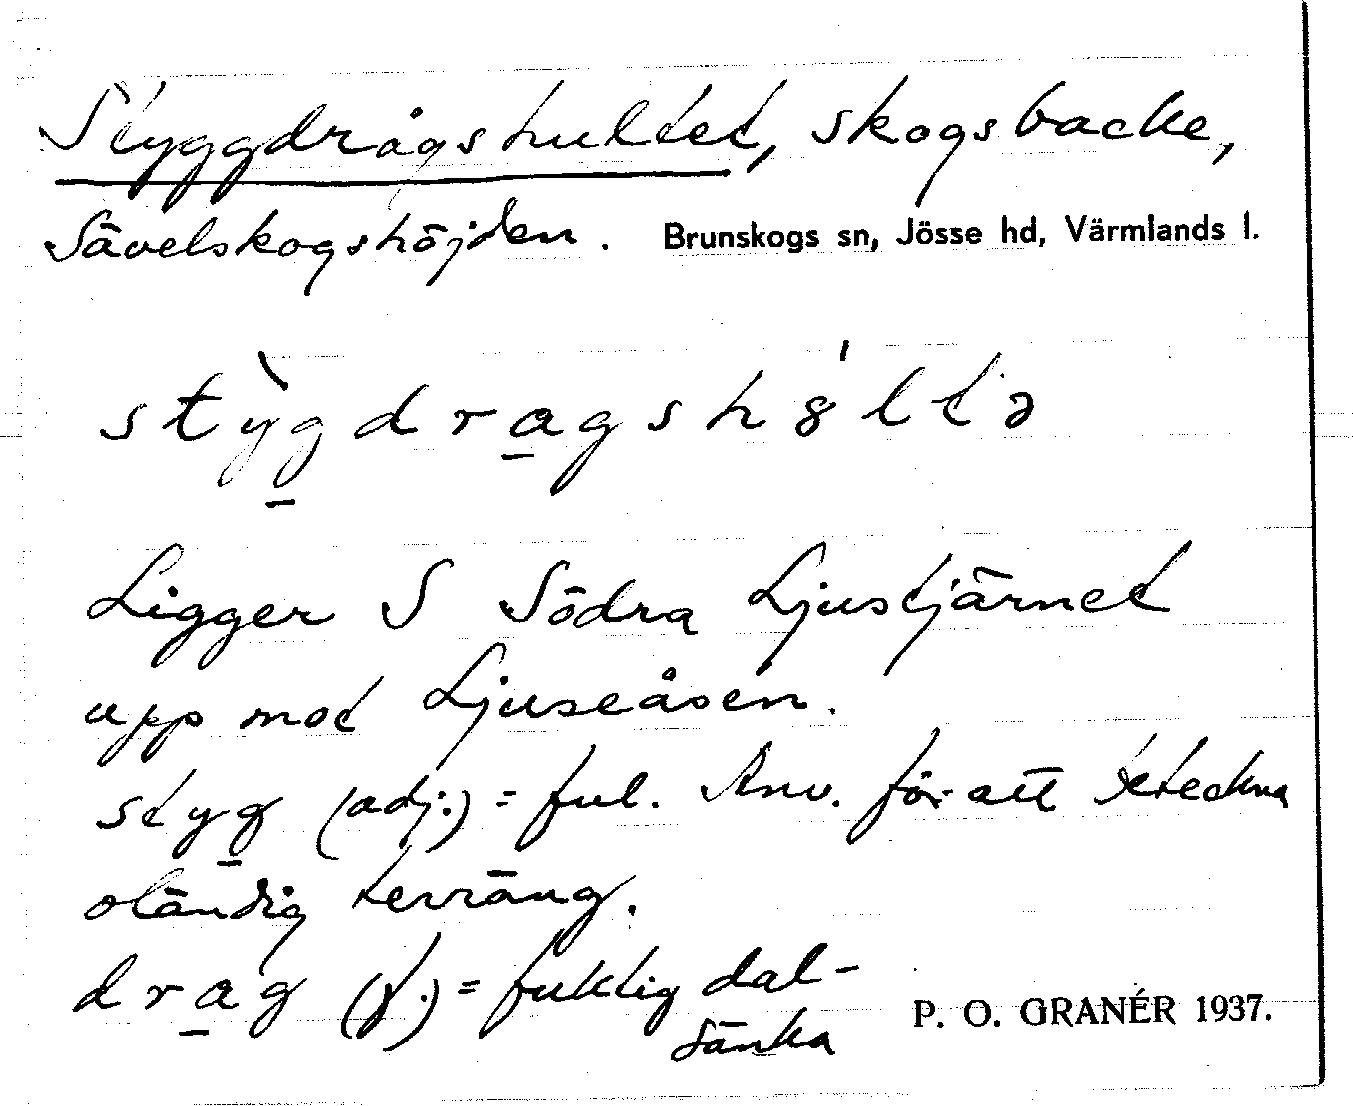 Styggdrågshultet, skogsbacke,
Sävelskogshöjden. Brunskogs sn, Jösse hd, Värmlands l.
stỳgdragshȣ́ltə
Ligger S Södra Ljustjärnet
upp mot Ljuseåsen.
styg (adj.) = ful. Anv. för att beteckna
oländig terräng.
drag (f.) = fuktig dal-
sänka
P. O. GRANÉR 1937.